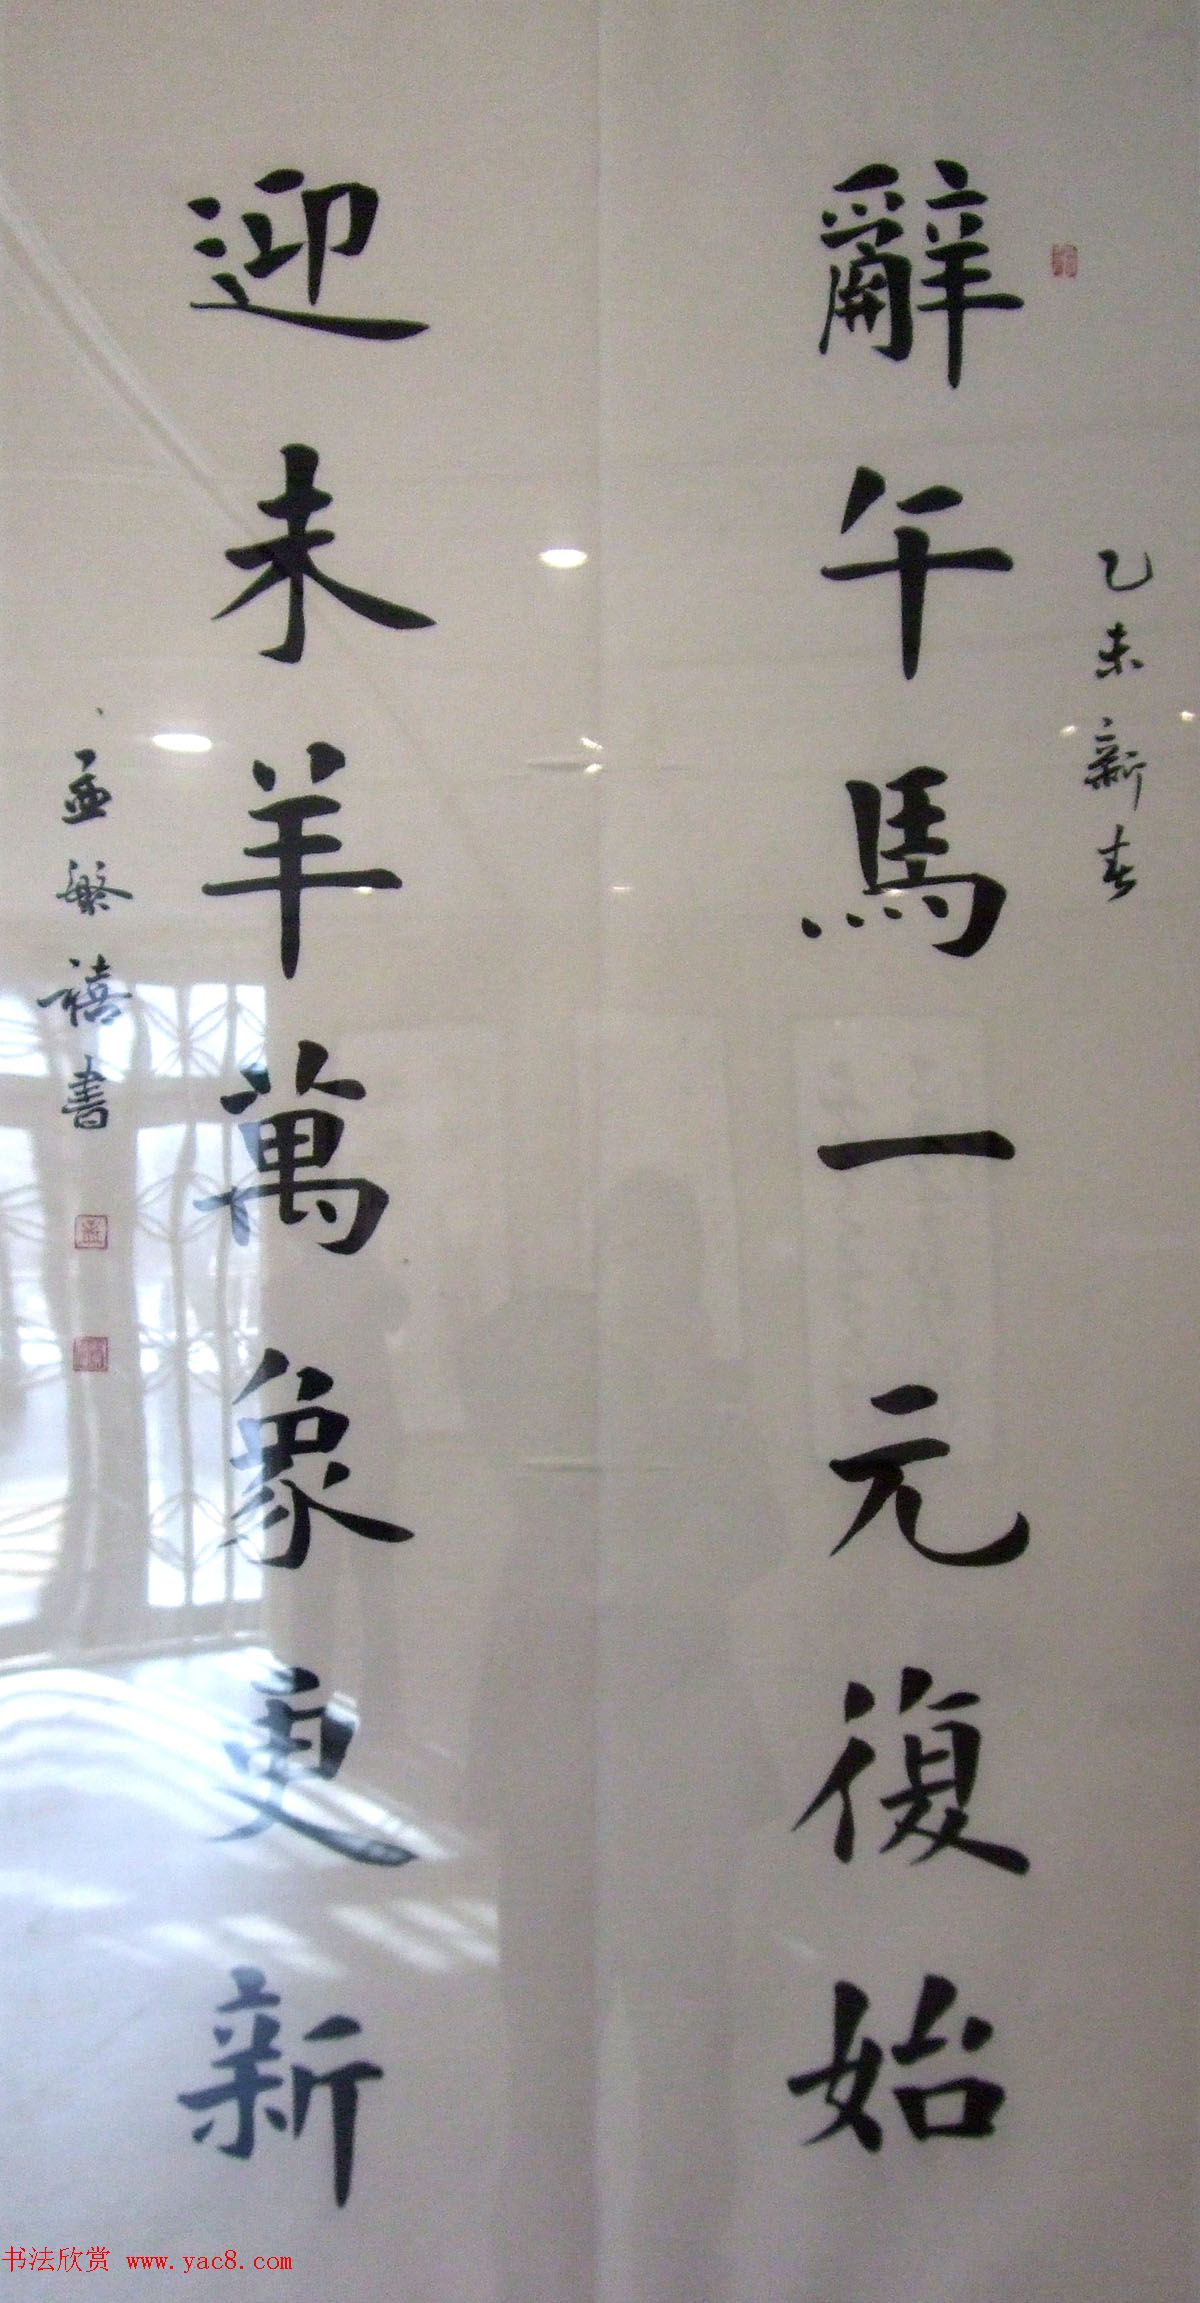 乙未新春
辭午馬一元復始
迎未羊萬象更新
孟繁禧書
书法欣赏 www.yac8.com